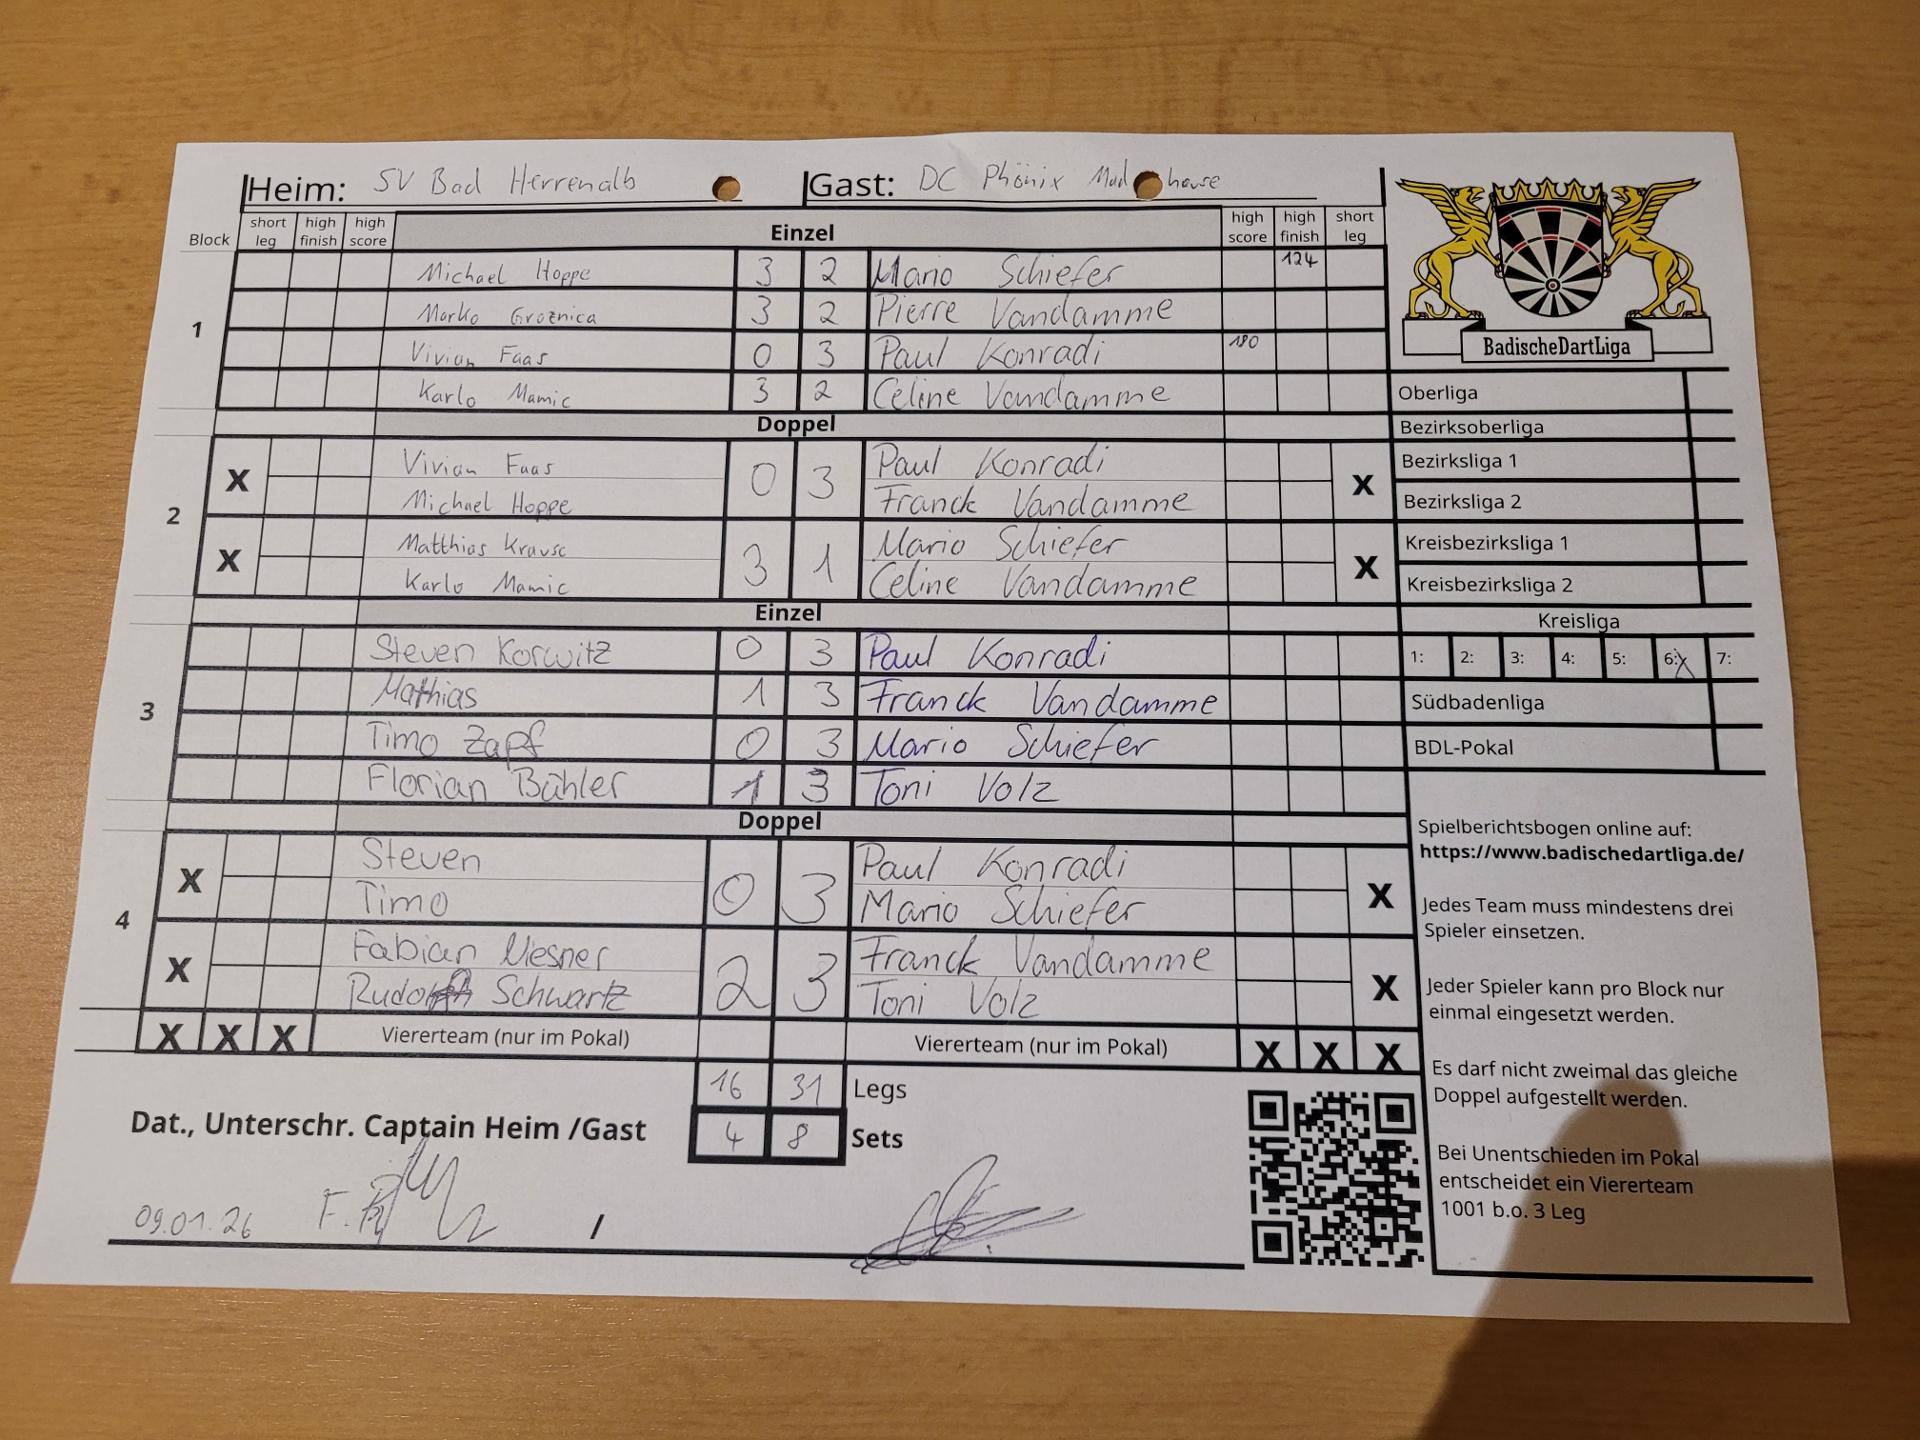 Heim: SV Bad Herrenalb Gast: DC Phönix Madhouse
Block short leg high finish high score Einzel high score high finish short leg
1
Michael Hoppe 3 2 Mario Schiefer 124
Marko Groznica 3 2 Pierre Vandamme
Vivian Faas 0 3 Paul Konradi 180
Karlo Mamic 3 2 Celine Vandamme
Doppel
2
X Vivian Faas 0 3 Paul Konradi X
Michael Hoppe Franck Vandamme
X Matthias Krause 3 1 Mario Schiefer X
Karlo Mamic Celine Vandamme
Einzel
3
Steven Korwitz 0 3 Paul Konradi
Mathias 1 3 Franck Vandamme
Timo Zapf 0 3 Mario Schiefer
Florian Bühler 1 3 Toni Volz
Doppel
4
X Steven 0 3 Paul Konradi X
Timo Mario Schiefer
X Fabian 2 3 Franck Vandamme X
Schwartz Toni Volz
X X X Viererteam (nur im Pokal) Viererteam (nur im Pokal) X X X
16 31 Legs
4 8 Sets
Dat., Unterschr. Captain Heim /Gast
09.01.26 /
BadischeDartLiga
Oberliga
Bezirksoberliga
Bezirksliga 1
Bezirksliga 2
Kreisbezirksliga 1
Kreisbezirksliga 2
Kreisliga
1: 2: 3: 4: 5: 6: X 7:
Südbadenliga
BDL-Pokal
Spielberichtsbogen online auf:
https://www.badischedartliga.de/
Jedes Team muss mindestens drei
Spieler einsetzen.
Jeder Spieler kann pro Block nur
einmal eingesetzt werden.
Es darf nicht zweimal das gleiche
Doppel aufgestellt werden.
Bei Unentschieden im Pokal
entscheidet ein Viererteam
1001 b.o. 3 Leg